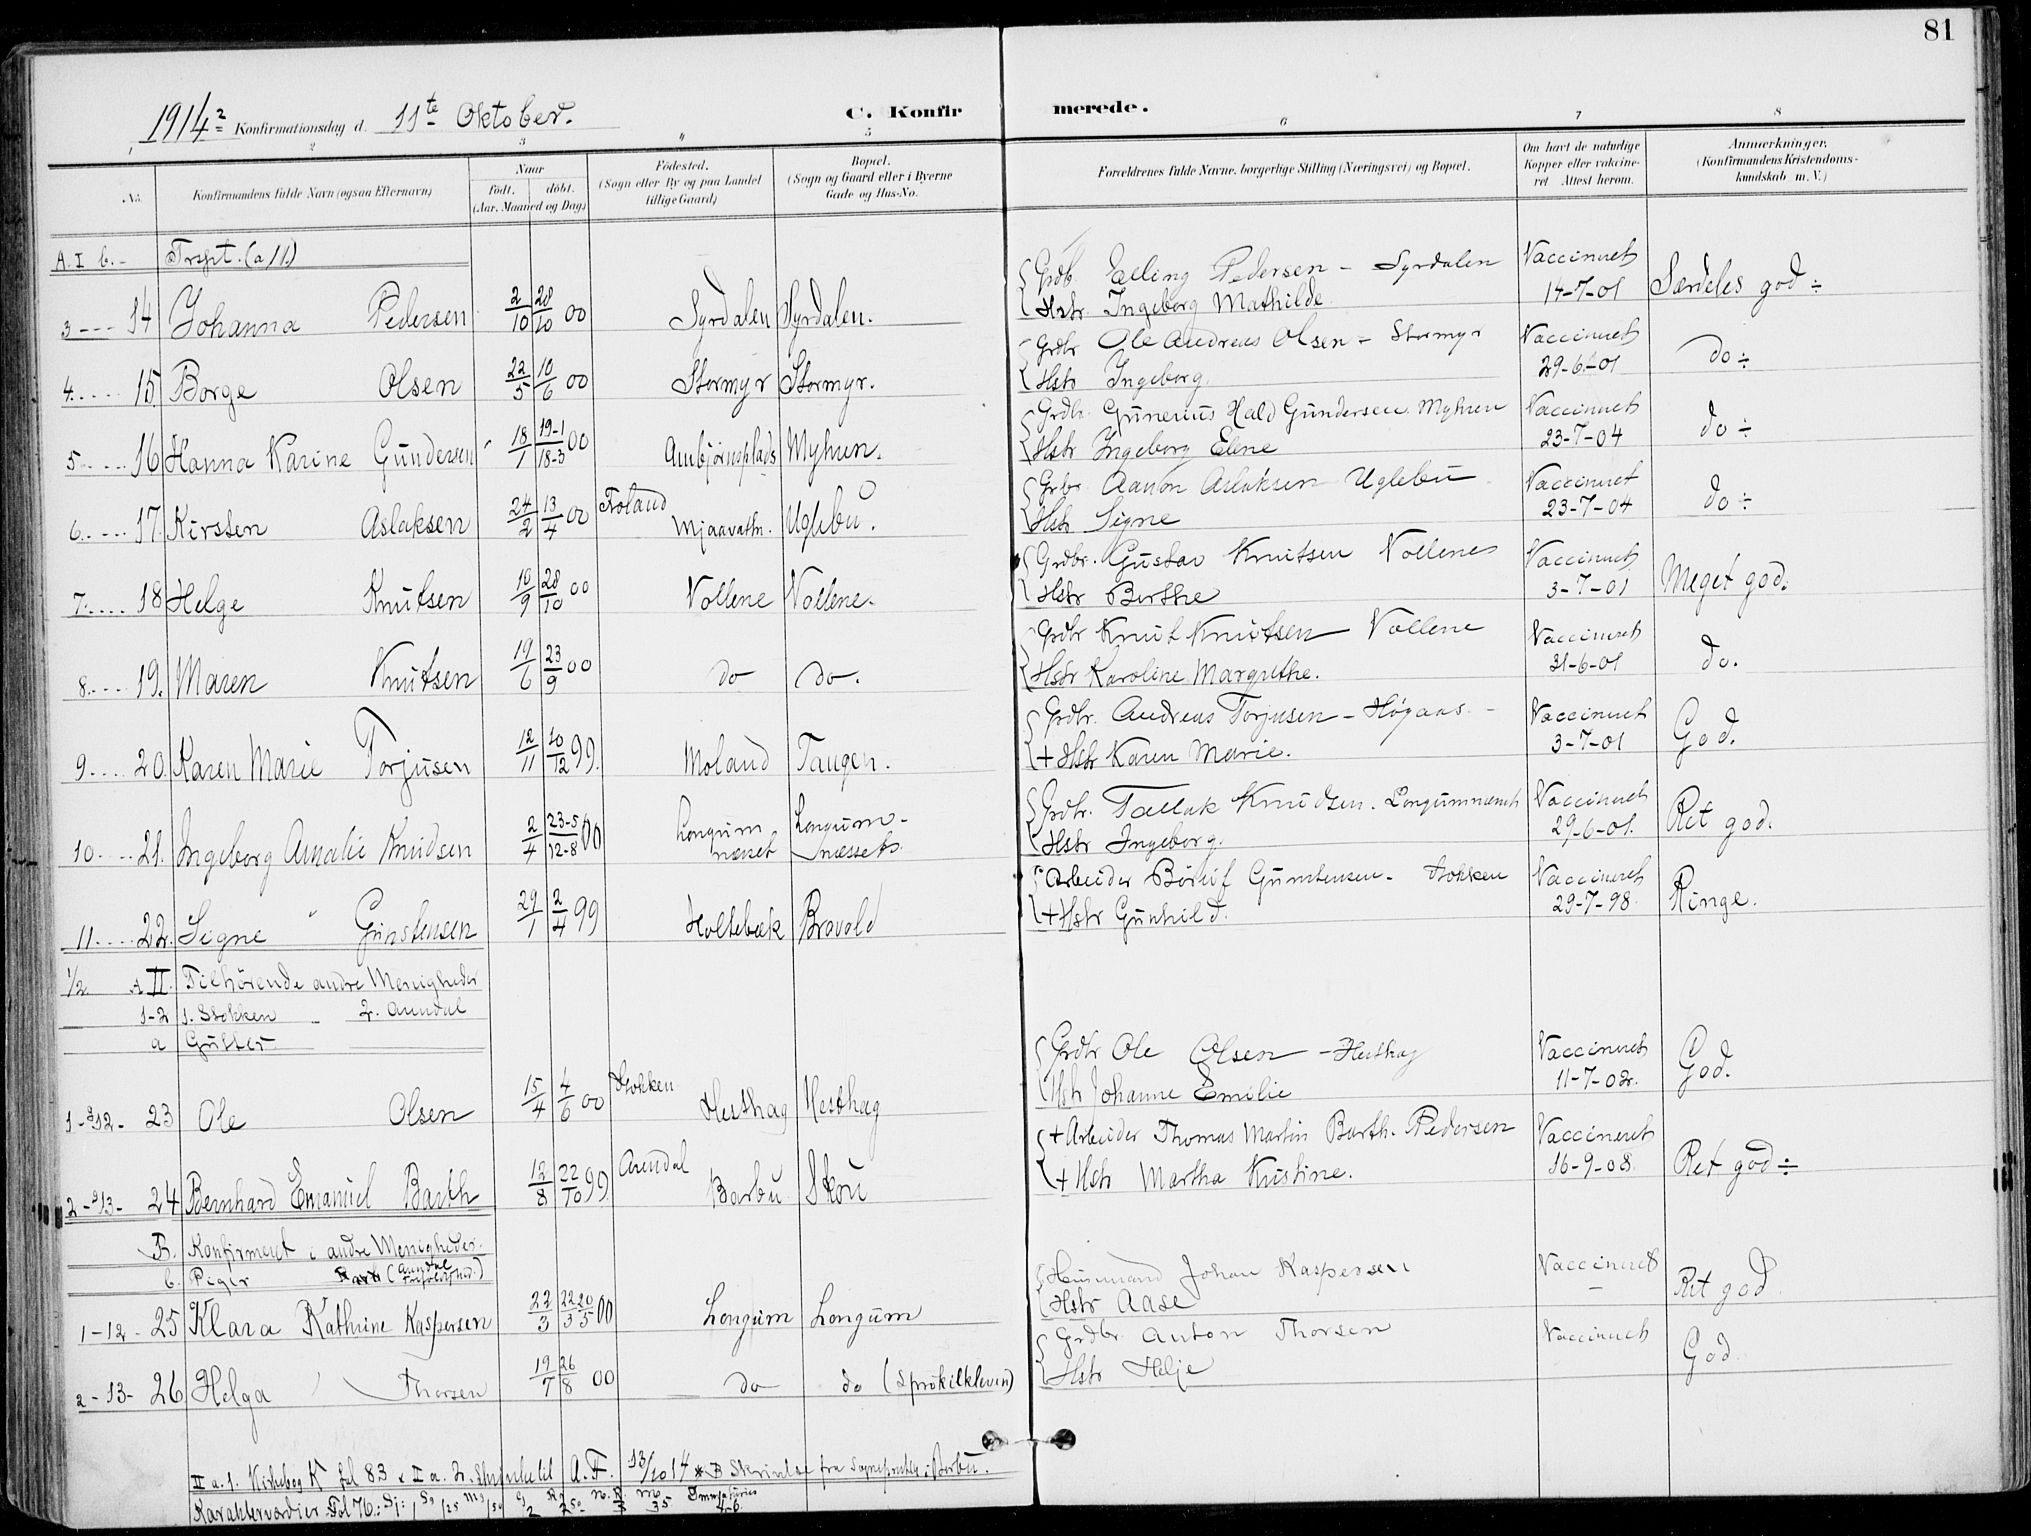 81
1914 2 Konfirmationsdag d. 11te Oktober.
C. Konfirmerede.
1 2 3 4 5 6 7 8
No. Konfirmandens fulde Navn (ogsaa Efternavn) Naar født. døbt. (Aar, Maaned og Dag) Fødested. (Sogn eller By og paa Landet tillige Gaard) Bopæl. (Sogn og Gaard eller i Byerne Gade og Hus-No. Forældrenes fulde Navne, borgerlige Stilling (Næringsvei) og Bopæl. Om havt de naturlige Kopper eller vaccineret. Attest herom. Anmærkninger. (Konfirmandens Kristendomskundskab m. V.)
A. I b. -
3 --- 14 Johanna Pedersen 2/10 28/10 00 Syrdalen Syrdalen. Grdb. Elling Pedersen - Syrdalen Vaccineret Særdeles god ÷
Hstr. Ingeborg Mathilde. 14-7-01
4 .... 15 Borge Olsen 22/5 10/6 00 Stormyr Stormyr. Grdbr Ole Andreas Olsen - Stormyr Vaccineret do ÷
Hstr Ingeborg. 29-6-01
5 .... 16 Hanna Karine Gundersen 18/1 19-1/18-3 00 Ambjørnsplads Myhren. Grdbr. Gunerius Hald Gundersen. Myhren Vaccineret do ÷
Hstr Ingeborg Elene 23-7-04
6 .... 17. Kirsten Aslaksen 24/2 13/4 00 Froland Mjaavatn. Uglebu. Grbr. Aanon Aslaksen Uglebu Vaccineret do ÷
Hstr Signe 23-7-04
7 .... 18 Helge Knutsen 10/9 28/10 00 Vollene Vollene. Grdbr. Gustav Knutsen Vollene Vaccineret Meget god.
Hstr Berthe 3-7-01
8 .... 19. Maren Knutsen 19/6 23/9 00 do do. Grdbr Knut Knutsen Vollene Vaccineret do.
Hstr Karoline Margrethe. 21-6-01
9 .... 20. Karen Marie Torjusen 12/11 10/12 99. Moland Tangen. Grdbr. Andreas Torjusen - Høgaas. - Vaccineret God.
+ Hstr Karen Marie. 3-7-01
10 .... 21. Ingeborg Amalie Knudsen 2/4 23-5/12-8 00 Longum næset Longum-næsset Grdbr. Tallak Knudsen. Longumnæset Vaccineret Ret god.
Hstr Ingeborg. 29-6-01.
11 .... 22. Signe Gunstensen 29/1 2/4 99 Holtebæk Bravold Arbeider Børuf Gunstensen - Stokken Vaccineret Ringe.
+ Hstr Gunhild. 29-7-98.
1/2 A II. Tilhørende andre Menigheder
1-2 1. Stokken 2. Arendal
a Gutter
1-12- 23 Ole Olsen 15/4 4/6 00 Stokken Hesthag Hesthag Grdbr Ole Olsen - Hesthag Vaccineret God.
Hstr Johanne Emilie 11-7-02.
2-13- 24 Bernhard Emanuel Barth 12/8 22/10 99 Arendal Barbu Skou + Arbeider Thomas Martin Barth-Pedersen Vaccineret Ret god ÷
+ Hstr Martha Kristine. 16-9-08.
B. Konfirmeret i andre Menigheder.
b. Piger
1-12- 25 Klara Kathrine Kaspersen 22/3 22/3 20/5 00 Longum Longum Husmand Johan Kaspersen Vaccineret Ret god.
Hstr Aase -
2-13- 26 Helga Thorsen 19/7 26/8 00 do do (Sprøkilkleven) Grdbr. Anton Thorsen Vaccineret God.
Hstr Helje
II a. 1. Kirkebog K fol 83 A. F. 13/10 14 * B Skrivelse fra Sogneprest i Barbu.
Karakterværdier Fol 76: